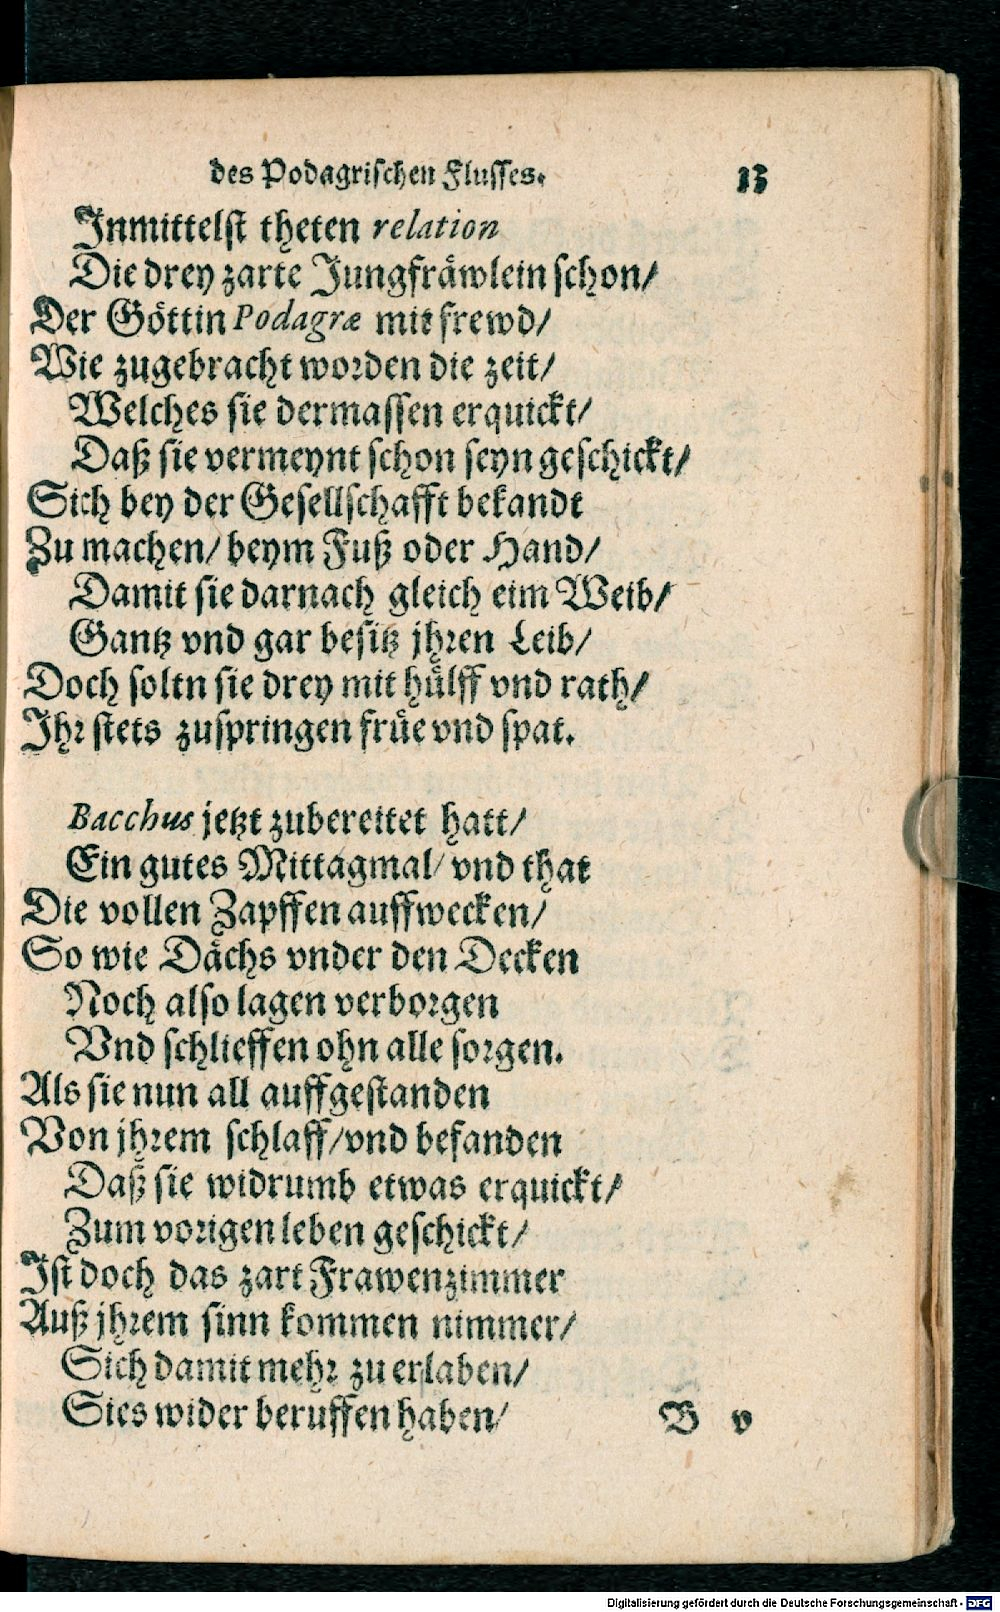 des Podagrischen Flusses. 13
Inmittelst theten relation
Die drey zarte Jungfräwlein schon/
Der Göttin Podagræ mit frewd/
Wie zugebracht worden die zeit/
Welches sie dermassen erquickt/
Daß sie vermeynt schon seyn geschickt/
Sich bey der Gesellschafft bekandt
Zu machen/ beym Fuß oder Hand/
Damit sie darnach gleich eim Weib/
Gantz vnd gar besitz jhren Leib/
Doch soltn sie drey mit hülff vnd rath/
Ihr stets zuspringen früe vnd spat.
Bacchus jetzt zubereitet hatt/
Ein gutes Mittagmal/ vnd that
Die vollen Zapffen auffwecken/
So wie Dächs vnder den Decken
Noch also lagen verborgen
Vnd schlieffen ohn alle sorgen.
Als sie nun all auffgestanden
Von jhrem schlaff/ vnd befanden
Daß sie widrumb etwas erquickt/
Zum vorigen leben geschickt/
Ist doch das zart Frawenzimmer
Auß jhrem sinn kommen nimmer/
Sich damit mehr zu erlaben/
Sies wider beruffen haben/
B v
Digitalisierung gefördert durch die Deutsche Forschungsgemeinschaft - DFG